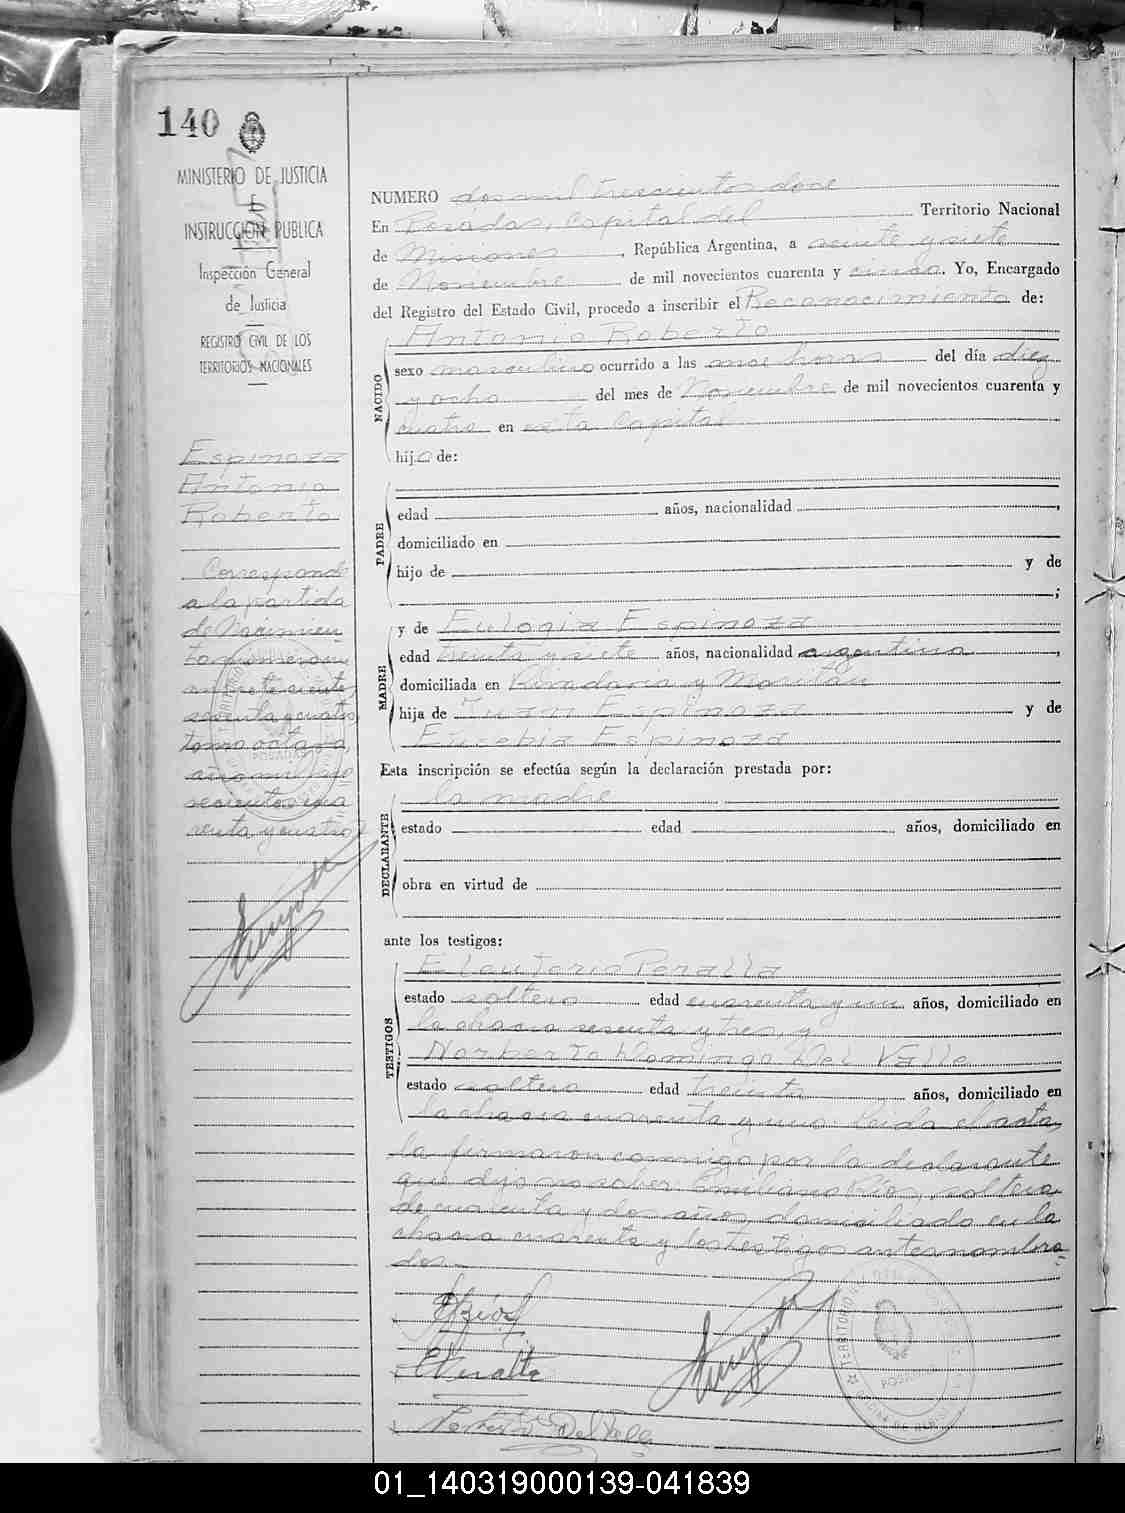 140
MINISTERIO DE JUSTICIA
E
INSTRUCCION PUBLICA
Inspección General
de Justicia
REGISTRO CIVIL DE LOS
TERRITORIOS NACIONALES
Espinoza
Antonio
Roberto
Corresponde
a la partida
de Nacimien
to número
setecientos
sesenta y cuatro
tomo octavo,
año mil no
vecientos cua
renta y cuatro
NUMERO dos mil trescientos doce
En Posadas, Capital del Territorio Nacional
de Misiones, República Argentina, a veinte y siete
de Noviembre de mil novecientos cuarenta y cinco. Yo, Encargado
del Registro del Estado Civil, procedo a inscribir el Reconocimiento de:
NACIDO
Antonio Roberto
sexo masculino ocurrido a las once horas del día diez
y ocho del mes de Noviembre de mil novecientos cuarenta y
cuatro en esta Capital
hijo de:
PADRE
edad años, nacionalidad ,
domiciliado en
hijo de y de
;
MADRE
y de Eulogia Espinoza
edad treinta y siete años, nacionalidad argentina,
domiciliada en Rivadavia y
hija de Juan Espinoza y de
Eusebia Espinoza
Esta inscripción se efectúa según la declaración prestada por:
DECLARANTE
la madre
estado edad años, domiciliado en
obra en virtud de
ante los testigos:
TESTIGOS
Eleuterio Peralta
estado soltero edad cuarenta y un años, domiciliado en
la chacra sesenta y tres, y
Norberto Domingo Del Valle
estado soltero edad treinta años, domiciliado en
la chacra cuarenta y uno. Leida el acta,
la firmaron conmigo, por la declarante
que dijo no saber: Emiliano Ríos, soltero,
de cuarenta y dos años, domiciliado en la
chacra cuarenta y los testigos antes nombra
dos.
ERíos
EPeralta
Norberto Del Valle
TERRITORIO
POSADAS
01_140319000139-041839